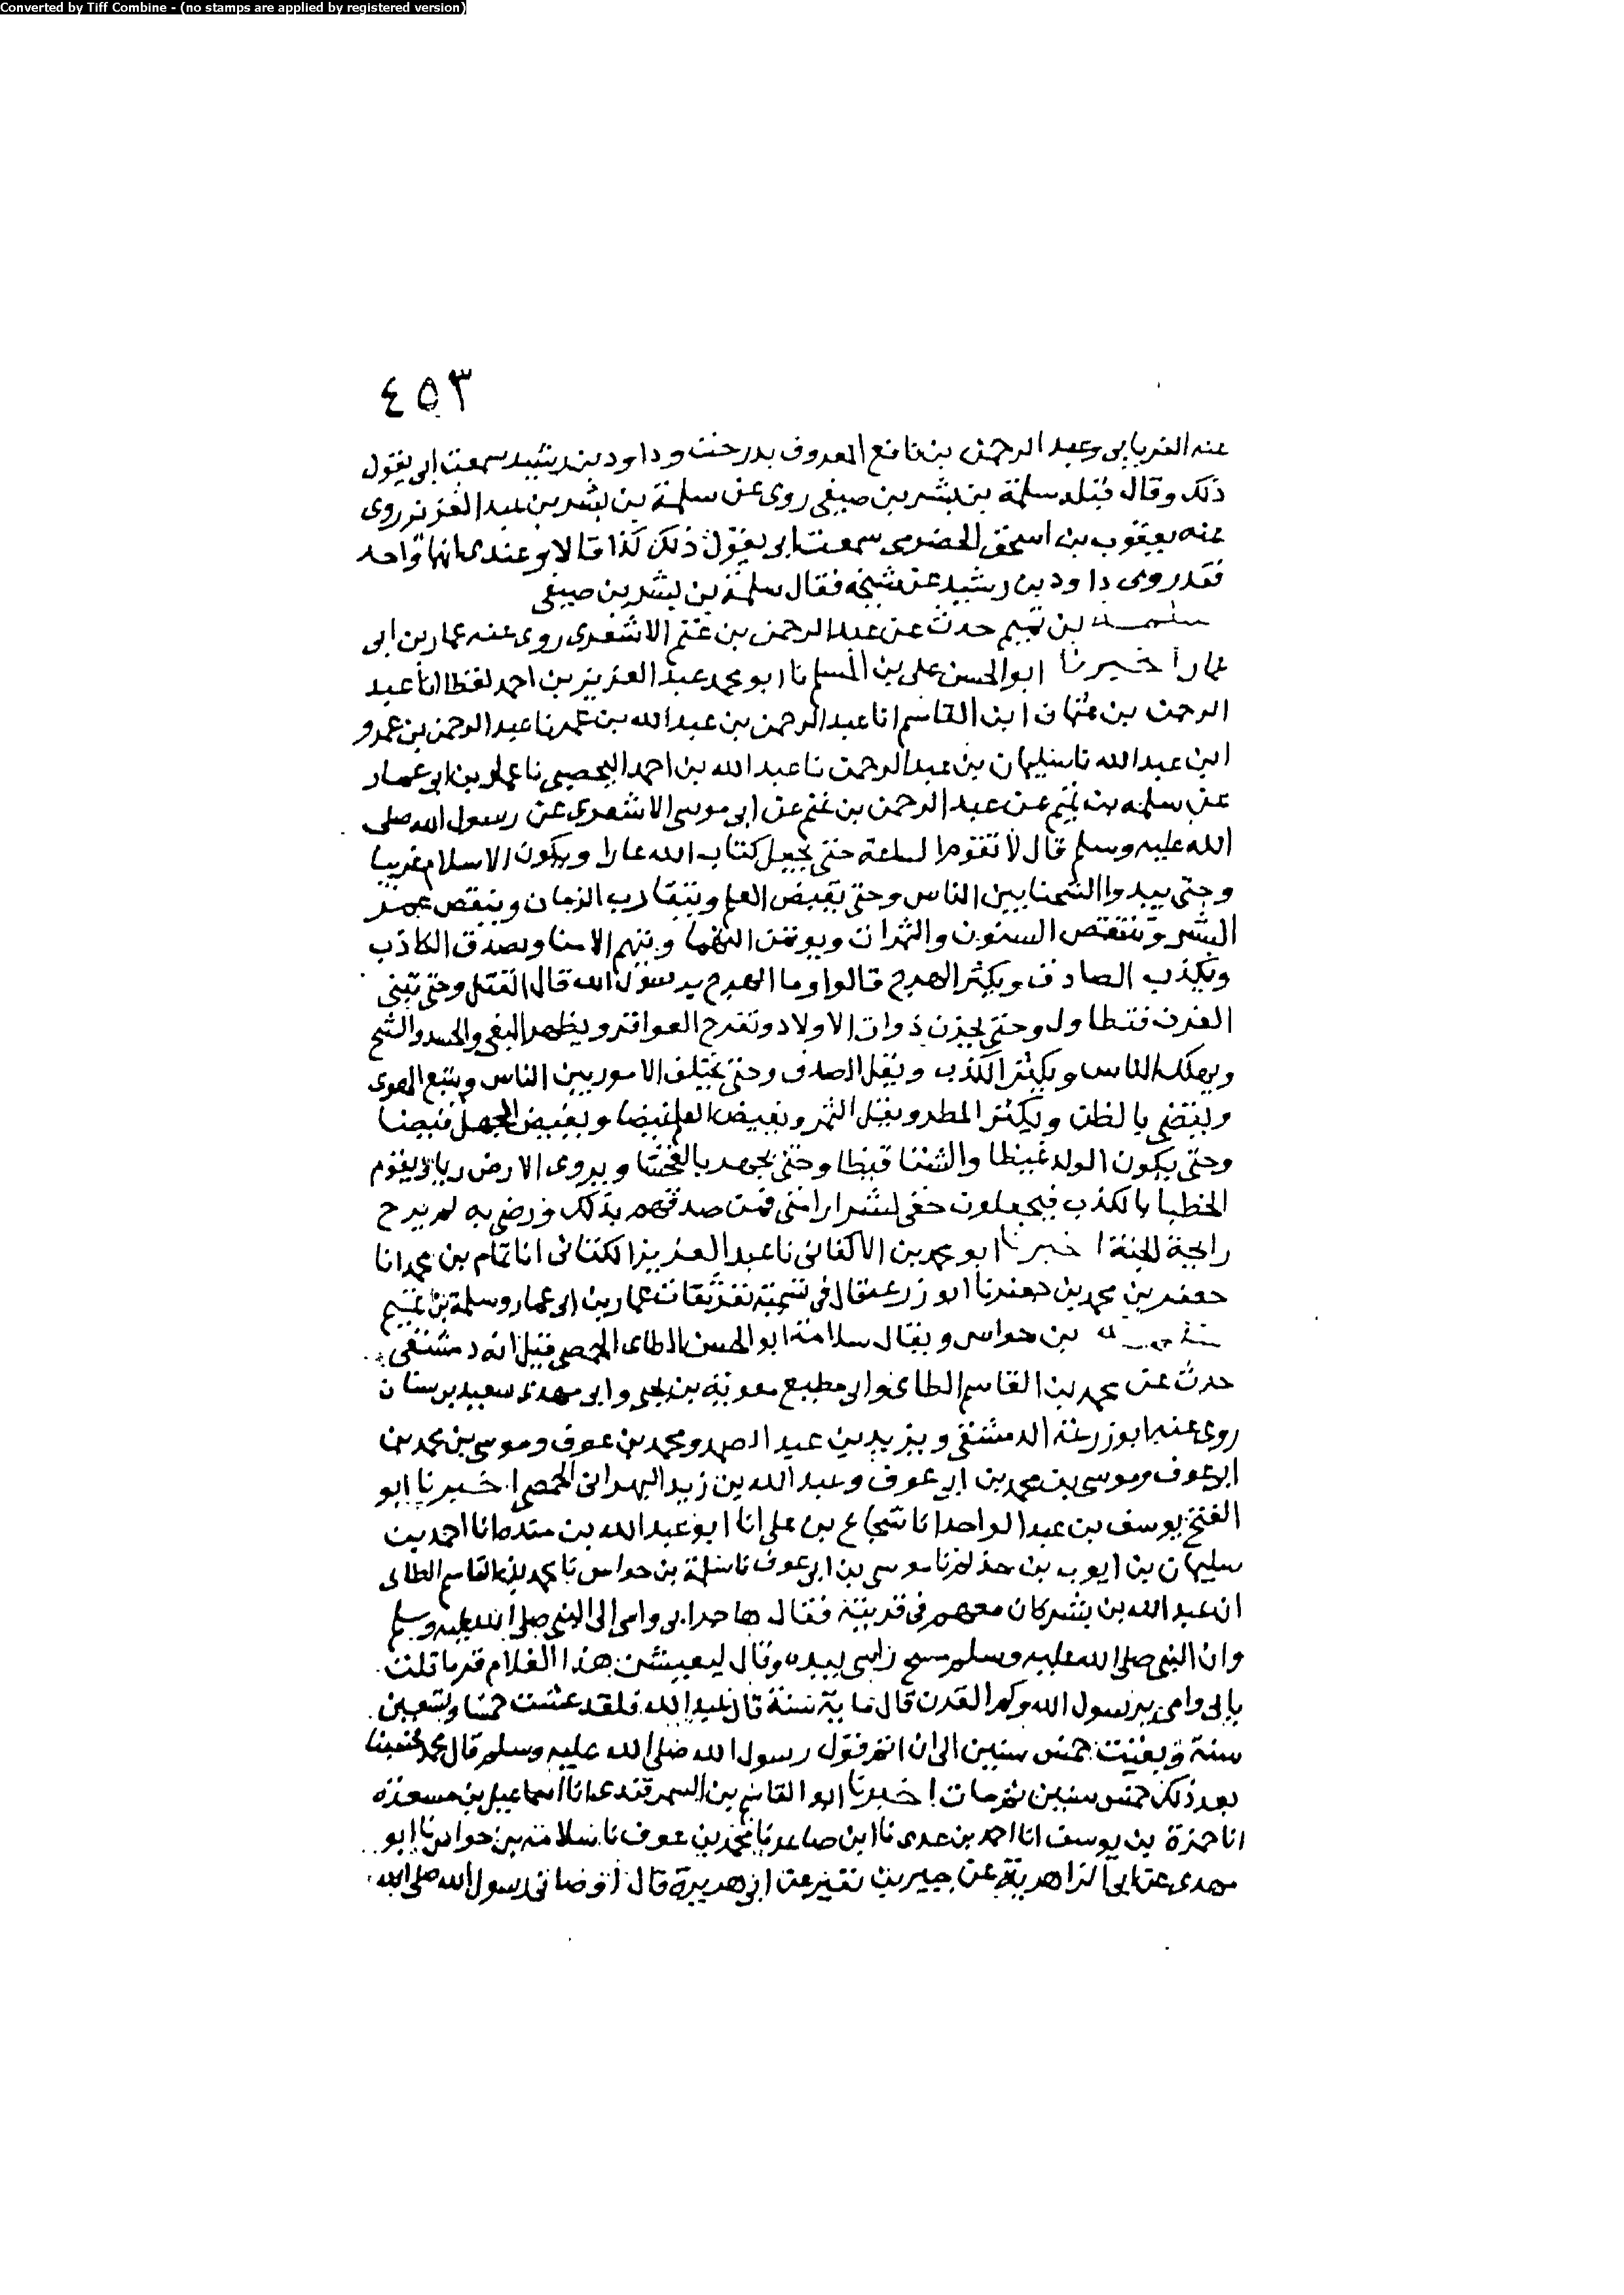 Converted by Tiff Combine - (no stamps are applied by registered version)
٤٥٣
عنه الفريابي وعبد الرحمن بن نافع المعروف بدرخت وداود بن رشيد سمعت ابي يقول
ذلك وقال قبله سلمة بن بشر بن صيفي روى عن سلمة بن بشر بن عبد العزيز روى
عنه يعقوب بن اسحق الحضرمي سمعت ابي يقول ذلك كذا قالا وعندي انهما واحد
فقد روى داود بن رشيد عن شيخه فقال سلمة بن بشر بن صيفي
سلمة بن تميم حدث عن عبد الرحمن بن غنم الاشعري روى عنه عمار بن ابي
عمار اخبرنا ابو الحسن علي بن المسلم نا ابو محمد عبد العزيز بن احمد لفظا انا عبد
الرحمن بن عثمان ابن القاسم انا عبد الرحمن بن عبد الله بن عمر نا عبد الرحمن بن عمرو
ابن عبد الله نا سليمان بن عبد الرحمن نا عبد الله بن احمد اليحصبي نا عمار بن ابي عمار
عن سلمه بن تميم عن عبد الرحمن بن غنم عن ابي موسى الاشعري عن رسول الله صلى
الله عليه وسلم قال لا تقوم الساعة حتى يجعل كتاب الله عارا ويكون الاسلام غريبا
وحتى يبدوا الشحنا بين الناس وحتى يقبض العلم ويتقارب الزمان وينقص عمر
البشر وتنتقص السنون والثمرات ويوتمن التهما ويتهم الامنا ويصدق الكاذب
ويكذب الصادق ويكثر الهرج قالوا وما الهرج يرسول الله قال القتل وحتى تبنى
الغرف فتطاول وحتى يحزن ذوات الاولاد وتفرح العواقر ويظهر البغي والحسد والشح
ويهلك الناس ويكثر الكذب ويقل الصدق وحتى تختلف الامور بين الناس ويتبع الهوى
ويقضي بالظن ويكثر المطر ويقل الثمر ويغيض العلم غيضا ويفيض الجهل فيضا
وحتى يكون الولد غيظا والشتا قيظا وحتى يجهر بالفحشا ويروى الارض ريا ويقوم
الخطبا بالكذب فيجعلون حقي لشرار امتي فمن صدقهم بذلك ورضي به لم يرح
رايحة الجنة اخبرنا ابو محمد بن الاكفاني نا عبد العزيز الكتاني انا تمام بن محمد انا
جعفر بن محمد بن جعفر نا ابو زرعة قال في تسمية نفر ثقات عمار بن ابي عمار وسلمة بن تميم
سلمة بن حواس ويقال سلامة ابو الحسن الطاي الحمصي قيل انه دمشقي
حدث عن محمد بن القاسم الطاي وابي مطيع معوية بن يحيى وابي مهدي سعيد بن سنان
روى عنه ابو زرعة الدمشقي ويزيد بن عبد الصمد ومحمد بن عوف وموسى بن محمد بن
ابي عوف وموسى بن محمد بن ابي عوف وعبد الله بن زيد البهراني الحمصي اخبرنا ابو
الفتح يوسف بن عبد الواحد انا شجاع بن علي انا ابو عبد الله بن منده انا احمد بن
سليمان بن ايوب بن حذلم نا موسى بن ابي عوف نا سلمة بن حواس نا محمد بن القاسم الطاي
ان عبد الله بن بشر كان معهم في قريته فقال هاجر ابي وامي الى النبي صلى الله عليه وسلم
وان النبي صلى الله عليه وسلم مسح راسي بيده وقال ليعيشن هذا الغلام قرنا قلت
بابي وامي يرسول الله وكم القرن قال ماية سنة قال عبد الله فلقد عشت خمسا وتسعين
سنة وبقيت خمس سنين الى ان اتم قول رسول الله صلى الله عليه وسلم قال محمد فحسبنا
بعد ذلك خمس سنين ثم مات اخبرنا ابو القاسم بن السمرقندي انا اسماعيل بن مسعدة
انا حمزة بن يوسف انا احمد بن عدي نا ابن صاعد نا محمد بن عوف نا سلامة بن حواس نا ابو
مهدي عن ابي الزاهرية عن جبير بن نفير عن ابي هريرة قال اوصاني رسول الله صلى الله